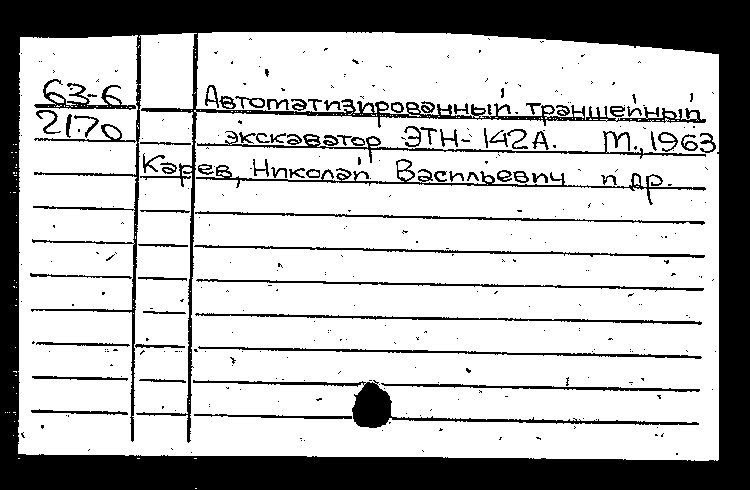 63-6
Автоматизированный траншейный
2170
экскаватор ЭТН-142А. М., 1963.
Карев, Николай Васильевич и др.